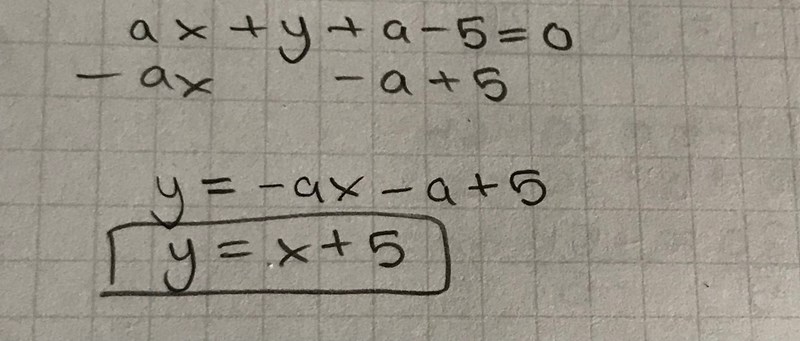 ax + y + a - 5 = 0
- ax - a + 5
y = -ax - a + 5
y = x + 5